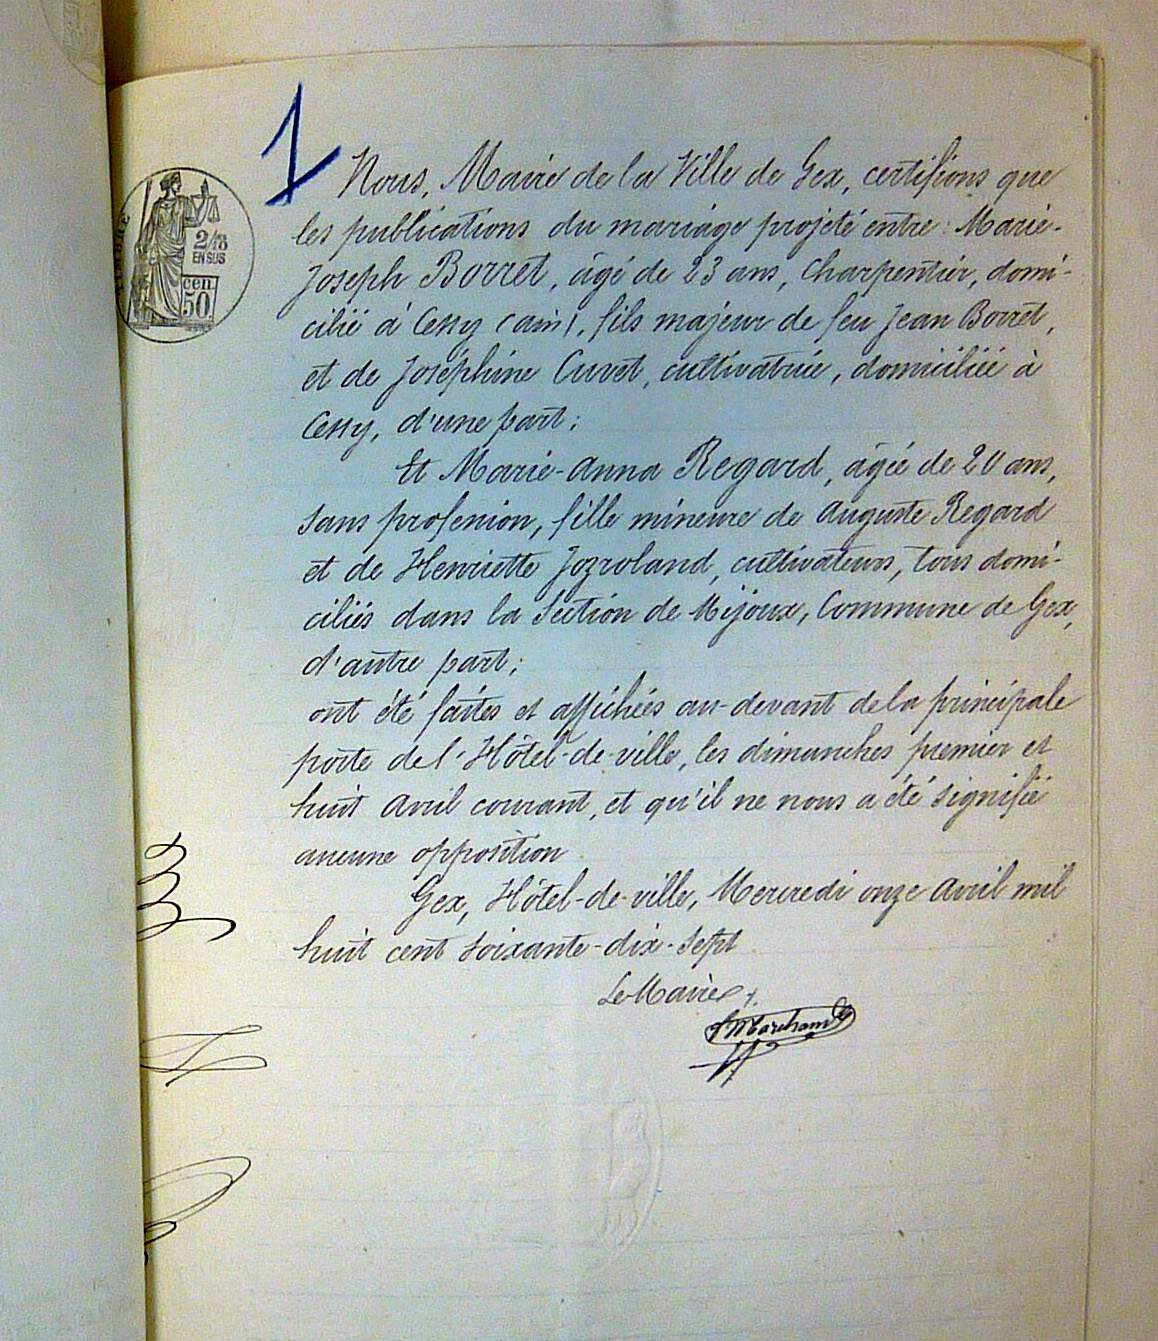 1
Nous, Maire de la Ville de Gex, certifions que
les publications du mariage projeté entre : Marie-
Joseph Borret, âgé de 23 ans, Charpentier, domi-
cilié à Cessy (ain), fils majeur de feu Jean Borret,
et de Joséphine Cuvet, cultivatrice, domiciliée à
Cessy, d'une part ;
Et Marie-Anna Regard, âgée de 20 ans,
sans profession, fille mineure de Auguste Regard
et de Henriette Jozroland, cultivateurs, tous domi-
ciliés dans la Section de Mijoux, Commune de Gex,
d'autre part ;
ont été faites et affichées au-devant de la principale
porte de l'Hôtel-de-ville, les dimanches premier et
huit avril courant, et qu'il ne nous a été signifié
aucune opposition
Gex, Hôtel-de-ville, Mercredi onze avril mil
huit cent soixante-dix-sept
Le Maire
Marchand
2/10
EN SUS
cen.
50